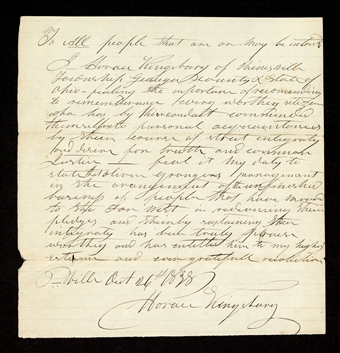 To all people that are or may be interested
I Horace Kingsbury of Painesville
Township Geauga County & State of
Ohio feeling the importance of recommending
to remembrance every worthy citizen
who has by their conduct commended
themselves to personal acquaintance
by their course of strict integrity
and desire for truth and common
justice — feel it my duty to
state that Oliver Grangers management
in the arrangement of the unfinished
business of people that have moved
to the Far West in redeeming their
pledges and thereby sustaining their
integrity has been truly
worthy and has entitled him to my highest
esteem and ever grateful recollection
P-Ville Oct 26th 1838
Horace Kingsbury